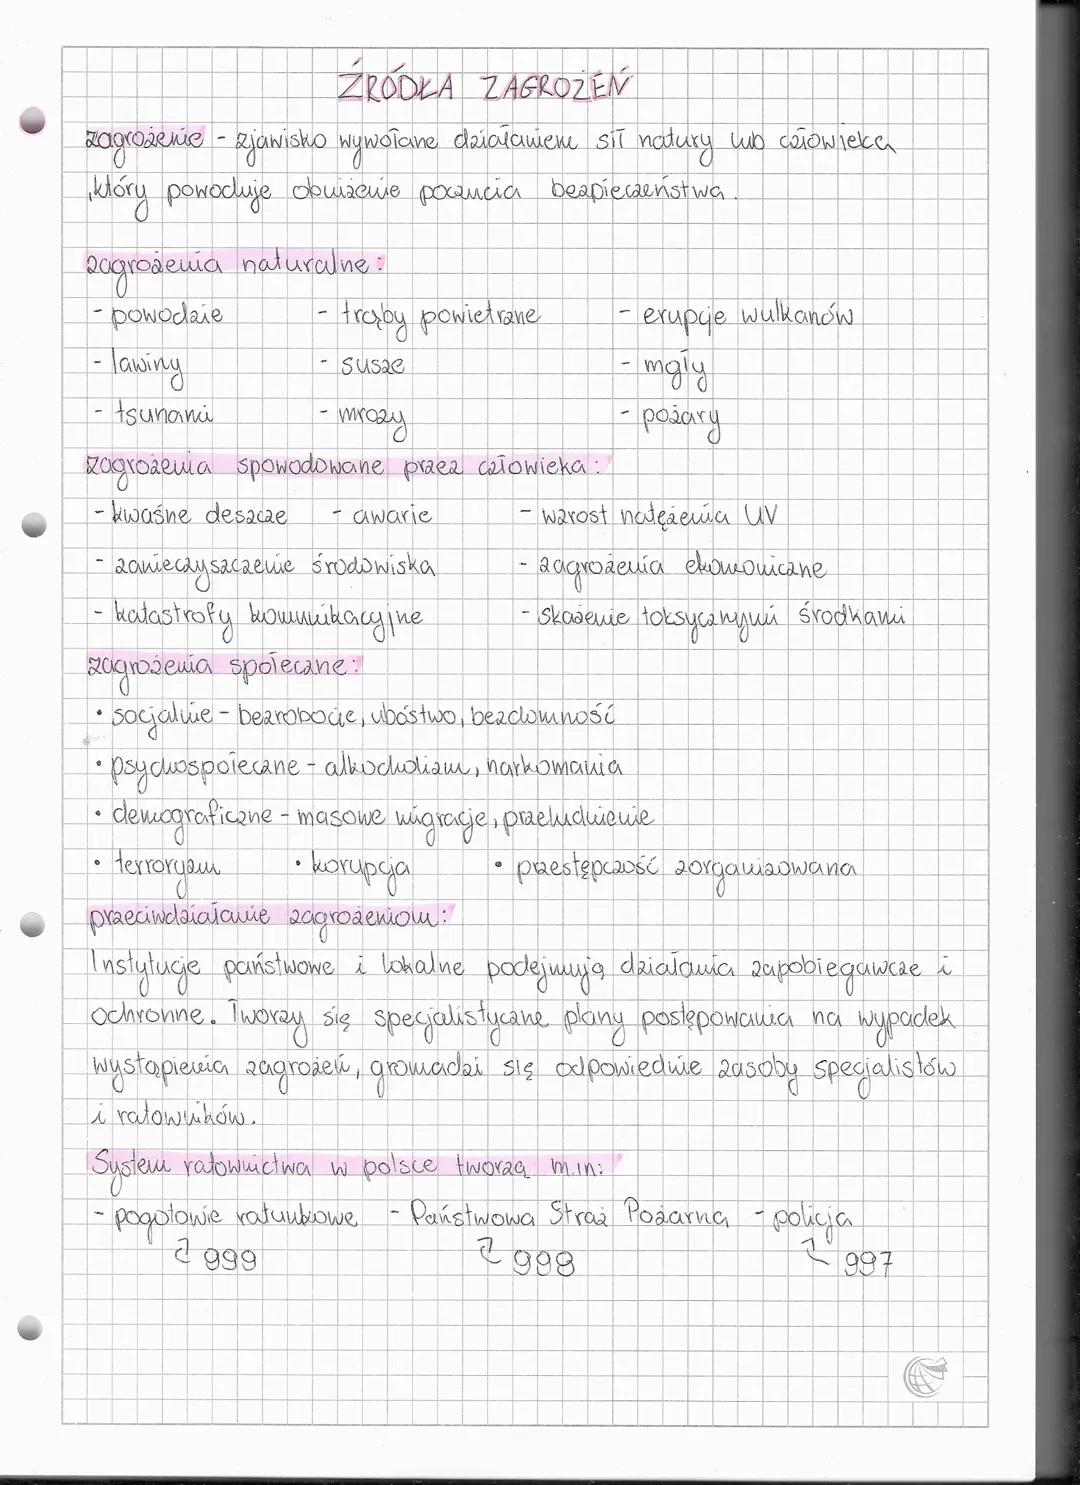 ŹRÓDŁA ZAGROŻEŃ
zagrożenie - zjawisko wywołane działaniem sił natury lub człowieka
, który powoduje obniżenie poczucia bezpieczeństwa.
zagrożenia naturalne:
- powodzie - trąby powietrzne - erupcje wulkanów
- lawiny - susze - mgły
- tsunami - mrozy - pożary
zagrożenia spowodowane przez człowieka:
- kwaśne deszcze - awarie - wzrost natężenia UV
- zanieczyszczenie środowiska - zagrożenia ekonomiczne
- katastrofy komunikacyjne - skażenie toksycznymi środkami
zagrożenia społeczne:
• socjalnie - bezrobocie, ubóstwo, bezdomność
• psychospołeczne - alkocholizm, narkomania
• demograficzne - masowe migracje, przeludnienie
• terroryzm • korupcja • przestępczość zorganizowana
przeciwdziałanie zagrożeniom:
Instytucje państwowe i lokalne podejmują działania zapobiegawcze i
ochronne. Tworzy się specjalistyczne plany postępowania na wypadek
wystąpienia zagrożeń, gromadzi się odpowiednie zasoby specjalistów
i ratowników.
System ratownictwa w polsce tworzą m.in:
- pogotowie ratunkowe - Państwowa Straż Pożarna - policja
999 998 997